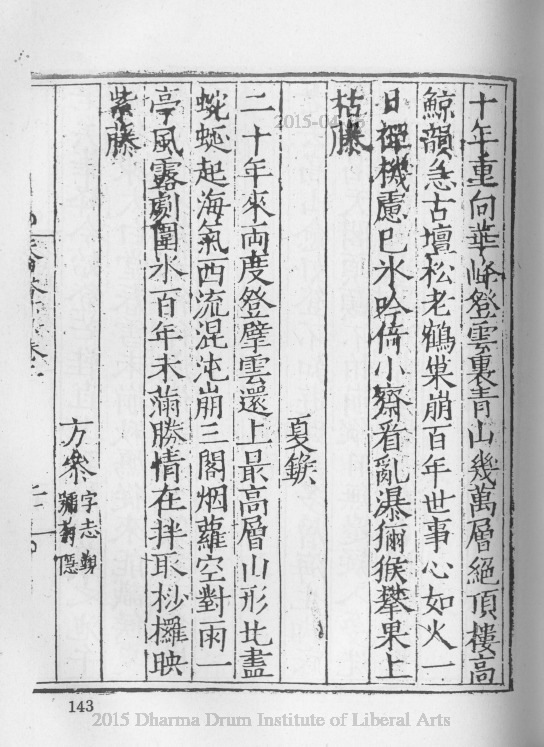 十年重向華峰登雲裏青山幾萬層絕頂樓高
鯨韻急古壇松老鶴巢崩百年世事心如火一
日禪機慮已氷吟倚小齋看亂瀑猕猴攀果上
枯藤
夏鍭
二十年來兩度登擘雲還上最高層山形北盡
蜿蜒起海氣西流混沌崩三閣烟蘿空對雨一
亭風露劇圍氷百年未滿勝情在拌取杪欏映
紫藤
方叅
字志
號
隱
143
2015 Dharma Drum Institute of Liberal Arts